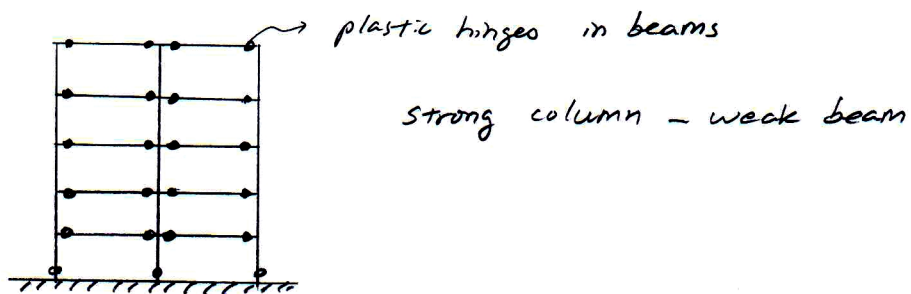 plastic hinges in beams
strong column - weak beam